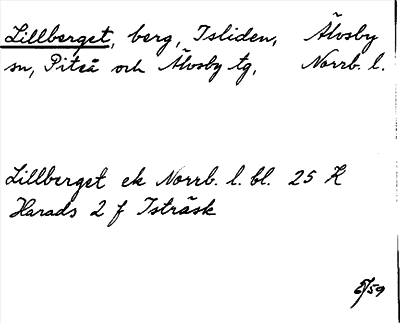 Lillberget, berg, Isliden, Älvsby
sn, Piteå och Älvsby tg, Norrb. l.
Lillberget ek Norrb. l. bl. 25 K
Harads 2 f Isträsk
5/59